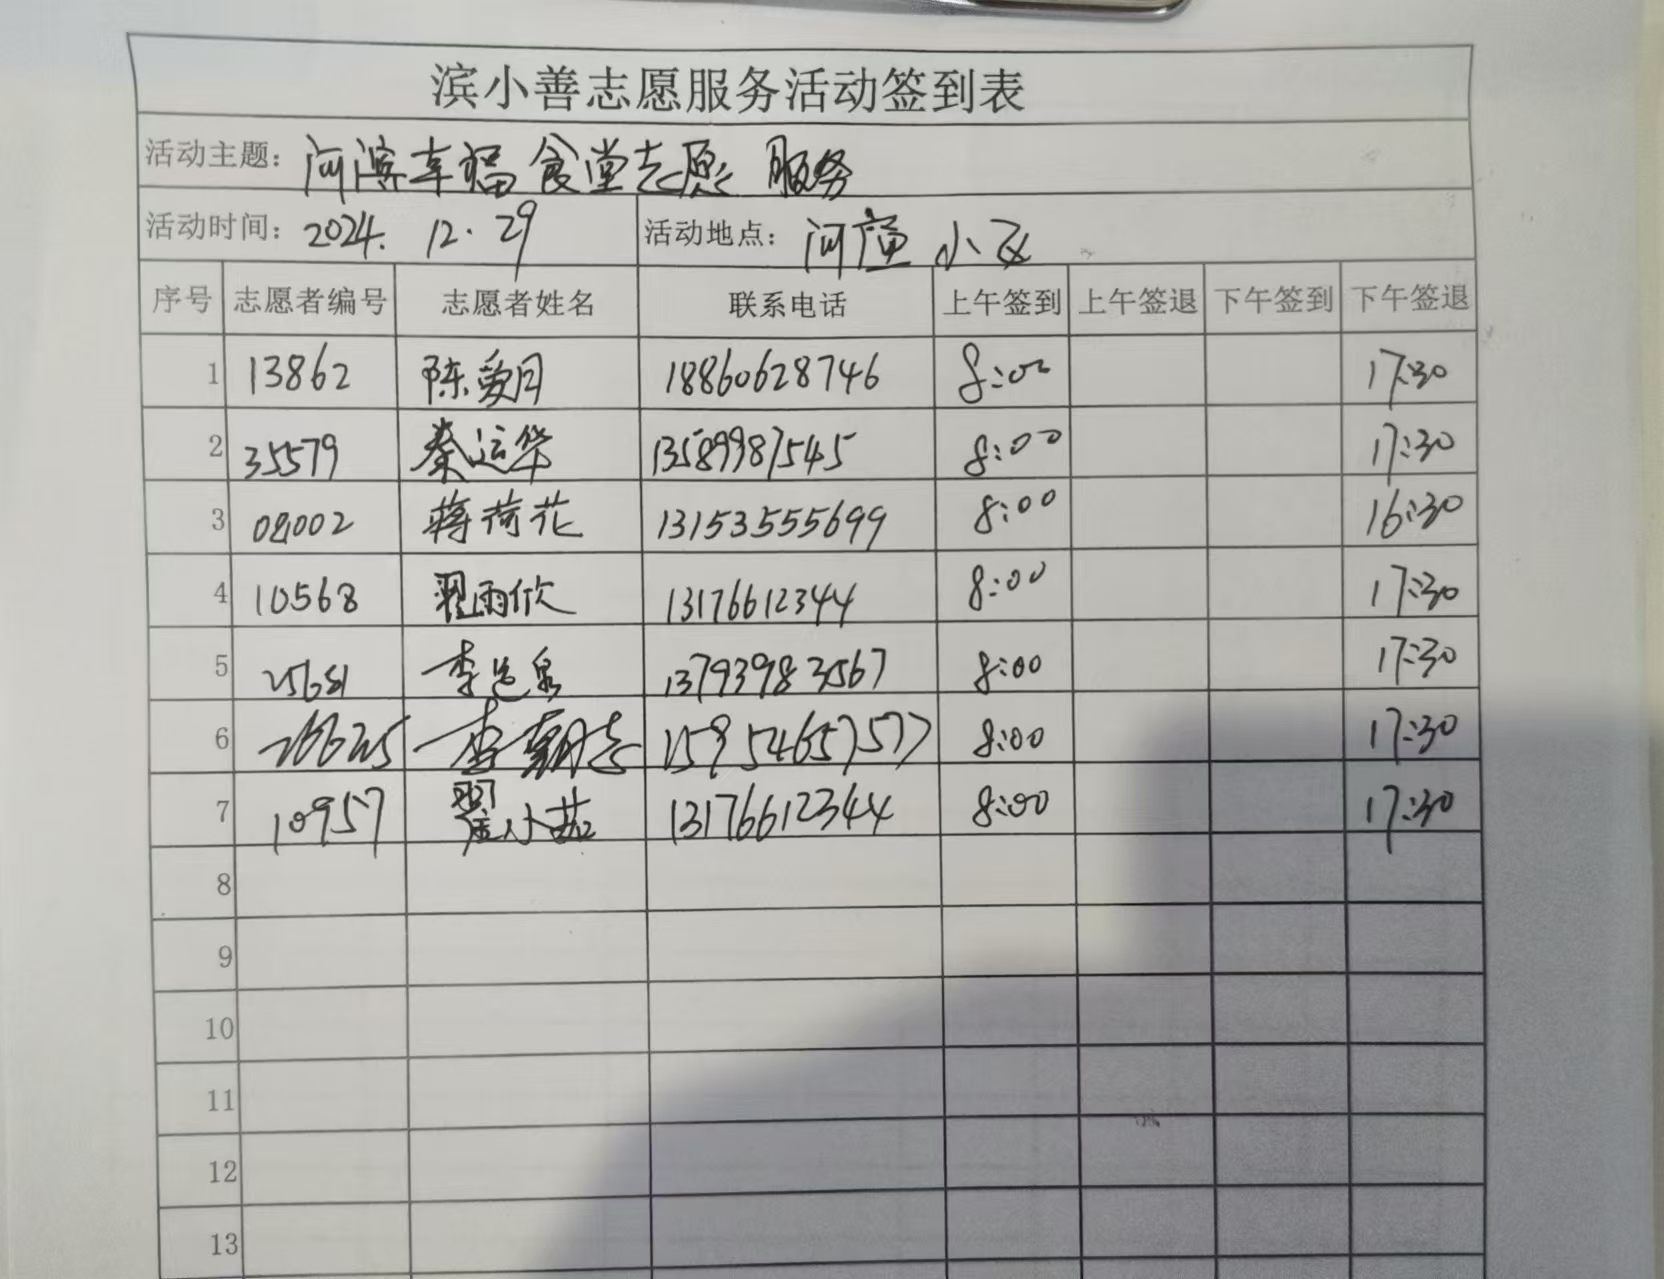 滨小善志愿服务活动签到表
活动主题：河滨幸福食堂志愿服务
活动时间：2024.12.29 活动地点：河滨小区
序号 志愿者编号 志愿者姓名 联系电话 上午签到 上午签退 下午签到 下午签退
1 13862 陈爱月 18860628746 8:00 17:30
2 35579 秦运华 13589987545 8:00 17:30
3 08002 蒋荷花 13153555699 8:00 16:30
4 10568 翟雨欣 13176612344 8:00 17:30
5 25681 李 泉 13793983567 8:00 17:30
6 李朝志 15954657577 8:00 17:30
7 10957 翟小茹 13176612344 8:00 17:30
8
9
10
11
12
13